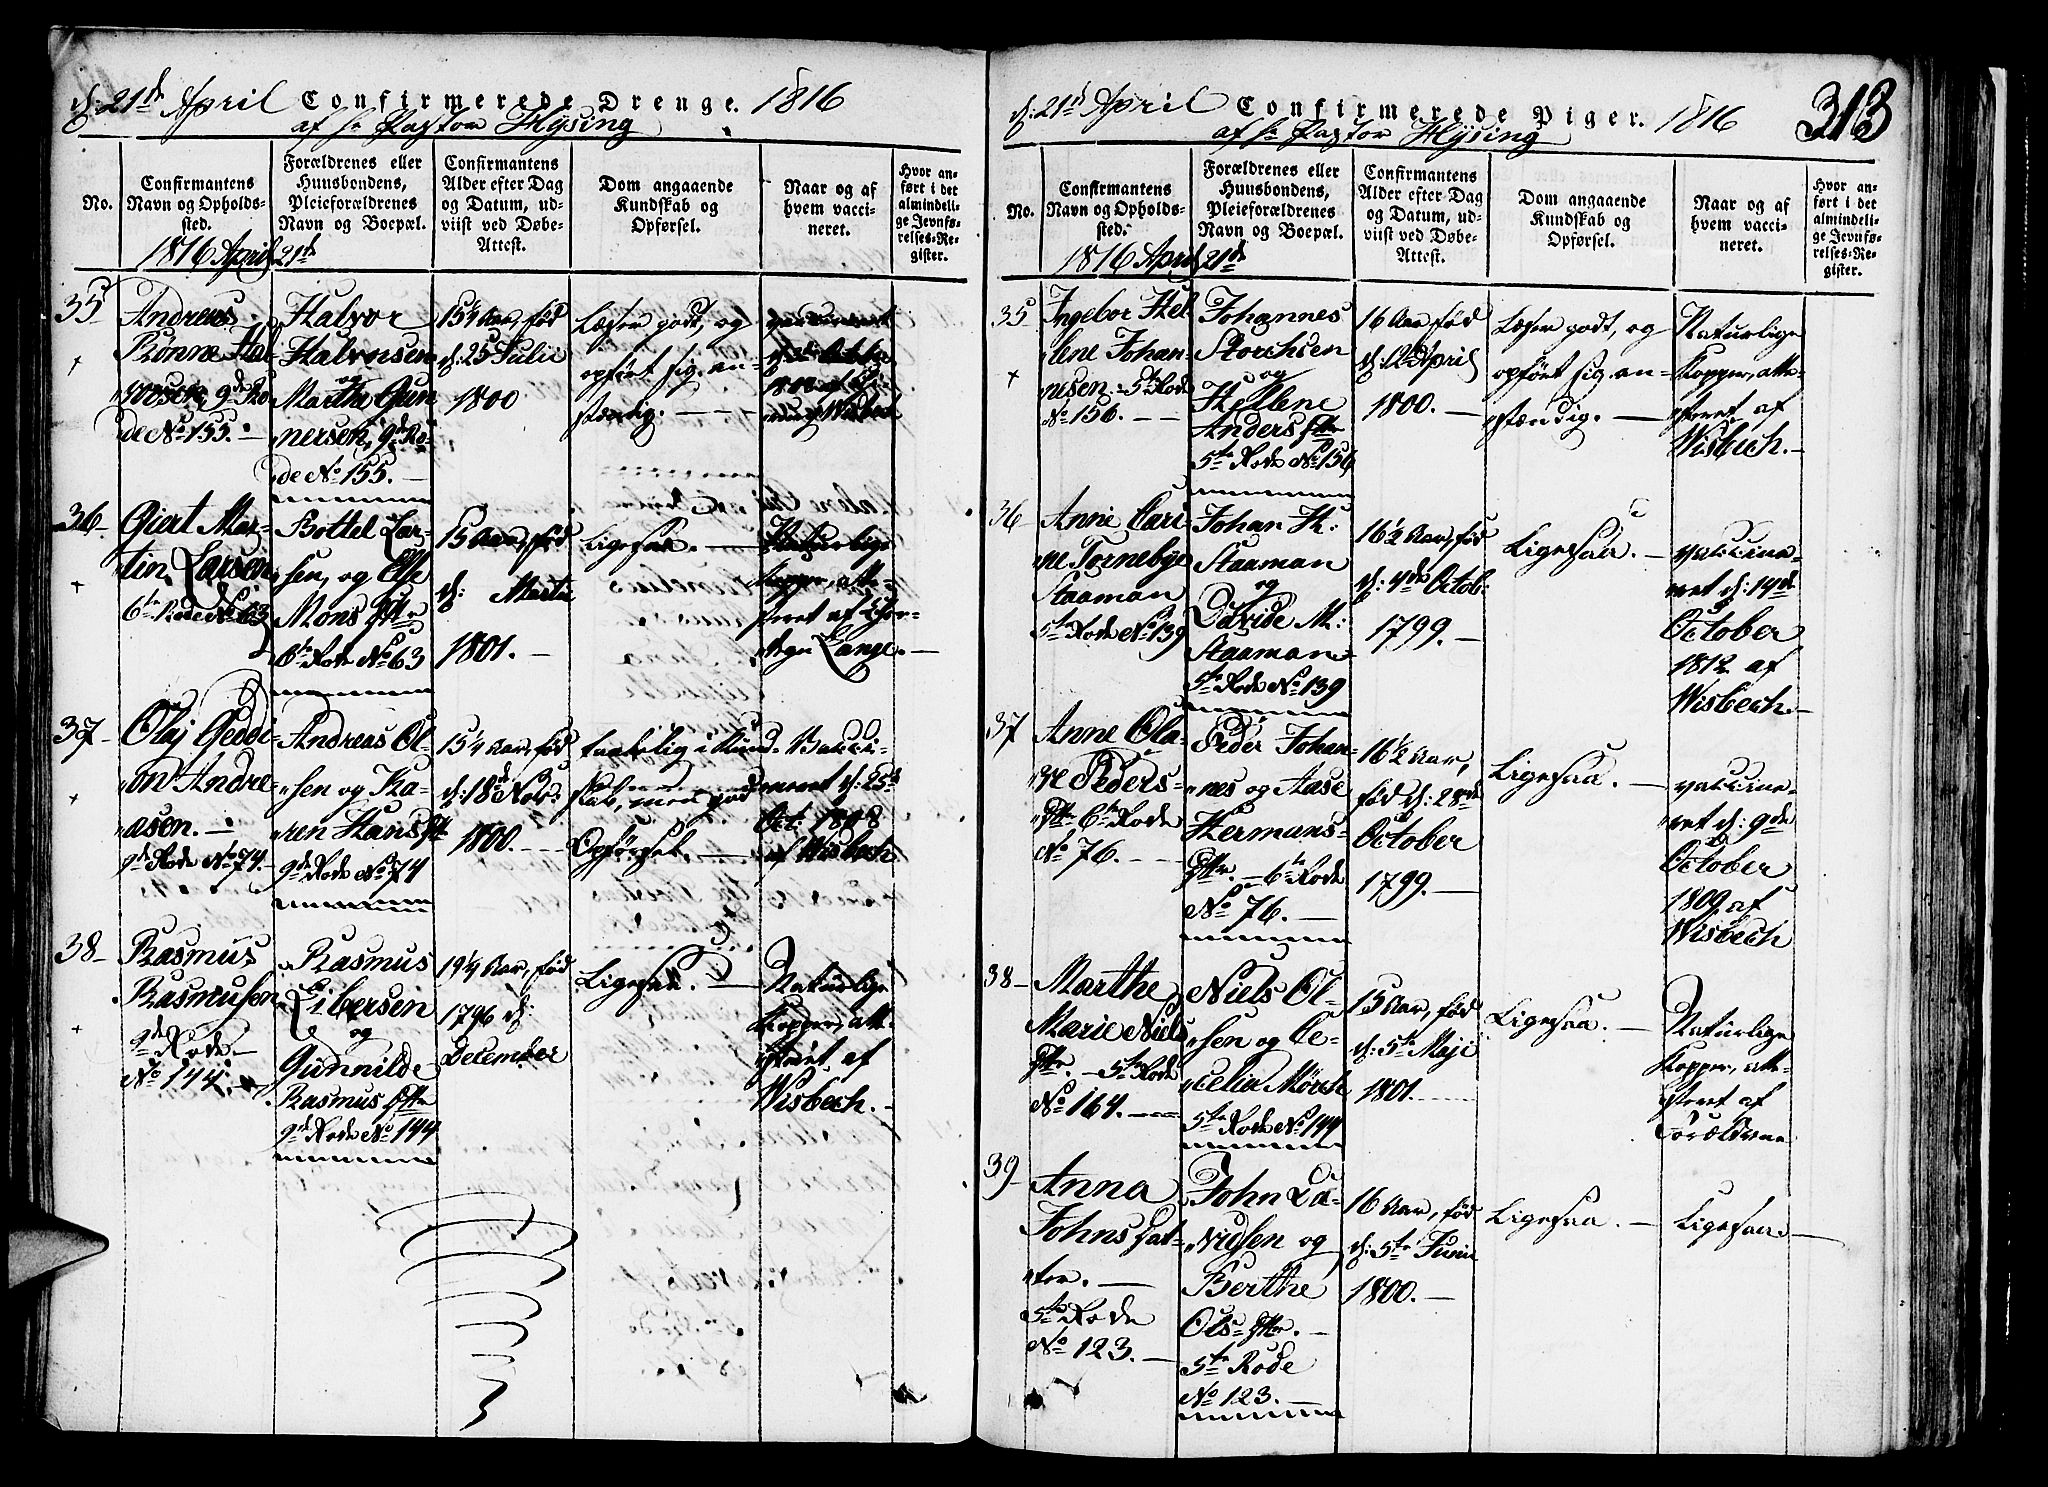 d: 21de April Confirmerede Drenge. 1816
af Hr Pastor Hysing
No.
Confirmantens
Navn og Opholds-
sted.
Forældrenes eller
Huusbondens,
Pleieforældrenes
Navn og Boepæl.
Confirmantens
Alder efter Dag
og Datum, ud-
viist ved Døbe-
Attest.
Dom angaaende
Kundskab og
Opførsel.
Naar og af
hvem vacci-
neret.
Hvor an-
ført i det
almindeli-
ge Jevnfø-
relses-Re-
gister.
1816 April 21de
35
Andreas
Rønne Hal-
worsen, 9de Ro-
de No 155. -
Halvor
Halvorsen
og
Martha Gun-
nersen, 9de Ro-
de No 155. -
15¾ Aar, fød
d: 25 Julii
1800
Læser godt, og
opført sig an-
stændig. - -
36-
Giert Mar-
tin Larsen
6te Rode No 63
Bottel Lar-
sen, og Else
Mons Dttr
6te Rode No 63
15 Aar, fød
d: Martii
1801. -
Ligesaa. -
Naturlige
Kopper, atte-
steret af Chor-
degn Lange. -
37-
Olaj Geddi-
on Andre-
asen. -
9de Rode No 74. -
Andreas Ol-
sen og Ka-
ren Hans Dtr
9de Rode No 74
15¼ Aar, fød
d: 18de Nov:
1800. - -
taalelig i Kund-
skab, men god
Opførsel. -
Vacci-
neret d: 25de
Oct: 1808
af Wisbech
38-
Rasmus
Rasmusen
9de Rode -
No 144. -
Rasmus
Eibersen
og
Gunnilde
Rasmus Dttr
9de Rode No 144
19¼ Aar, fød
1796 d:
December
Ligesaa. -
Naturlige
Kopper, att-
steret af
Wisbech. -
d: 21de April Confirmerede Piger. 1816 313
af Hr Pastor Hysing
No.
Confirmantens
Navn og Opholds-
sted.
Forældrenes eller
Huusbondens,
Pleieforældrenes
Navn og Boepæl.
Confirmantens
Alder efter Dag
og Datum, ud-
viist ved Døbe-
Attest.
Dom angaaende
Kundskab og
Opførsel.
Naar og af
hvem vacci-
neret.
Hvor an-
ført i det
almindeli-
ge Jevnfø-
relses-Re-
gister.
1816 April 21de
35
Ingebor Hel-
lene Johan-
nesen - 5te Rode
No 156. - -
Johannes
Storchsen
og
Hellene
Anders Dttr
5te Rode No 156
16 Aar, fød
d: 12 April
1800. -
Læser godt, og
opført sig an-
stændig. -
Naturlige
Kopper, atte-
steret af
Wisbech. -
36
Anne Cari-
ne Tornebye
Staaman
5te Rode No 139
Johan H:
Staaman
og
Davide M:
Staaman
5te Rode No 139
16½ Aar, fød
d: 4de Octob:
1799. -
Ligesaa. -
vaccine-
ret d: 14de
October
1812 af
Wisbech. -
37
Anne Ola-
ve Peders-
Dttr 6te Rode
No 76. - -
Peder Johan-
nes og Aase
Hermans-
Dttr. - 6te Rode
No 76. -
16½ Aar,
fød d: 28de
October
1799. -
Ligesaa. -
vaccine-
ret d: 9de
October
1809 af
Wisbech
38-
Marthe
Marie Niels
Dttr. - 5te Rode
No 164. -
Niels Ol-
sen og Ce-
celia Mørch
5te Rode No 144
15 Aar, fød
d: 5te Maji
1801.
Ligesaa. -
Naturlige
Kopper, atte-
steret af
Forældrene
39-
Anna
Johns Dat-
ter. -
5te Rode
No 123. -
John Da-
vidsen og
Berthe
Ols Dttr. -
5te Rode
No 123. -
16 Aar, fød
d: 5te Junii
1800. -
Ligesaa. -
Ligesaa -